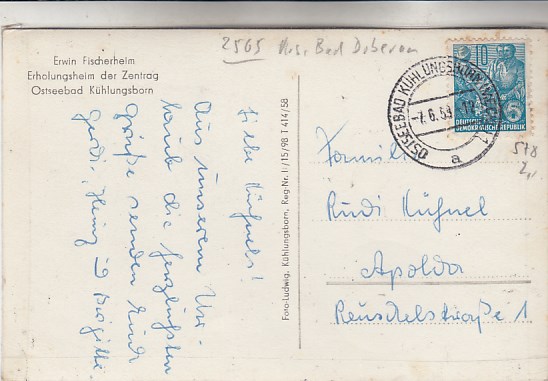 2565 Krs. Bad Doberan
Erwin Fischerheim
Erholungsheim der Zentrag
Ostseebad Kühlungsborn
Liebe Kühnels!
Aus unserem Ur-
laub die herzlichsten
Grüße senden Euch
Gerdi, Heinz u Birgitte.
Foto-Ludwig, Kühlungsborn, Reg-Nr. I/15/98 T 414/58
OSTSEEBAD KÜHLUNGSBORN
-7.6.59
a
10
DEUTSCHE
DEMOKRATISCHE REPUBLIK
578
2,-
Familie
Rudi Kühnel
Apolda
Reuschelstraße 1